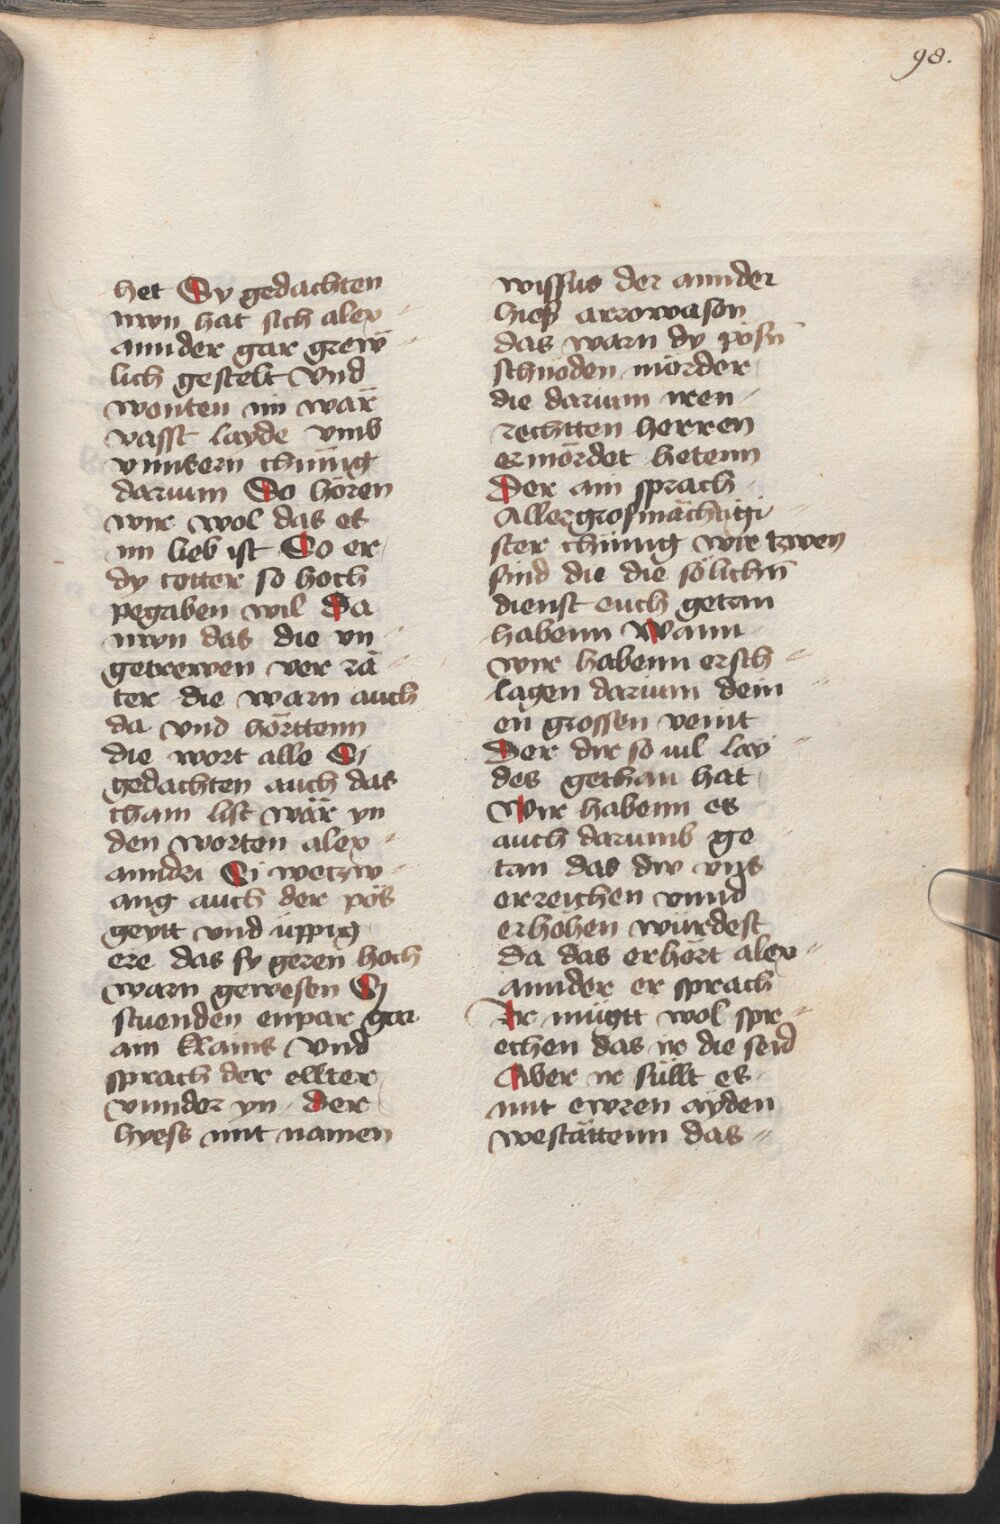 98.
het Sy gedachten
nwn hat sich alex
annder gar grew̄
lich gestelt Vnd
wonten im wär
vasst layde vmb
vnnsern chünig
darumm So hören
wir wol das es
im lieb ist So er
dy totter so hoch
pegaben wil Da
nwn das die vn
getrewen ver rä
ter die warn auch
da vnd hörttenn
die wort alle Si
gedachten auch das
chain list wär yn
den worten alex
anndri Si wetzw
ang auch der pös
geytt vnd üppig
ere das sy geren hoch
warn gewesen Si
stuenden enpar gar
ain klains Vnd
sprach der ellter
vnnder yn Der
hyess mit namen
wissus der annder
hiess arrowason
das warn dy pösn̄
schnoden mörder
die darumm iren
rechtten herren
ermördet hetenn
Der ain sprach
Allergrosmächtigi
ster chünig wir tzwen
sind die die sölichn̄
dienst euch getan
habenn Wann
wir habenn ersch
lagen darumm dein
en̄ grossen veint
Der dir so uil lay
des gethan hat
Wir habenn es
auch darumb ge
tan das dw vns
erreichen vnnd
erhöhen würdest
da das erhört alex
annder er sprach
Ir mügtt wol spr
echen das ir die seid
Aber ir süllt es
mit ewren ayden
westättenn das